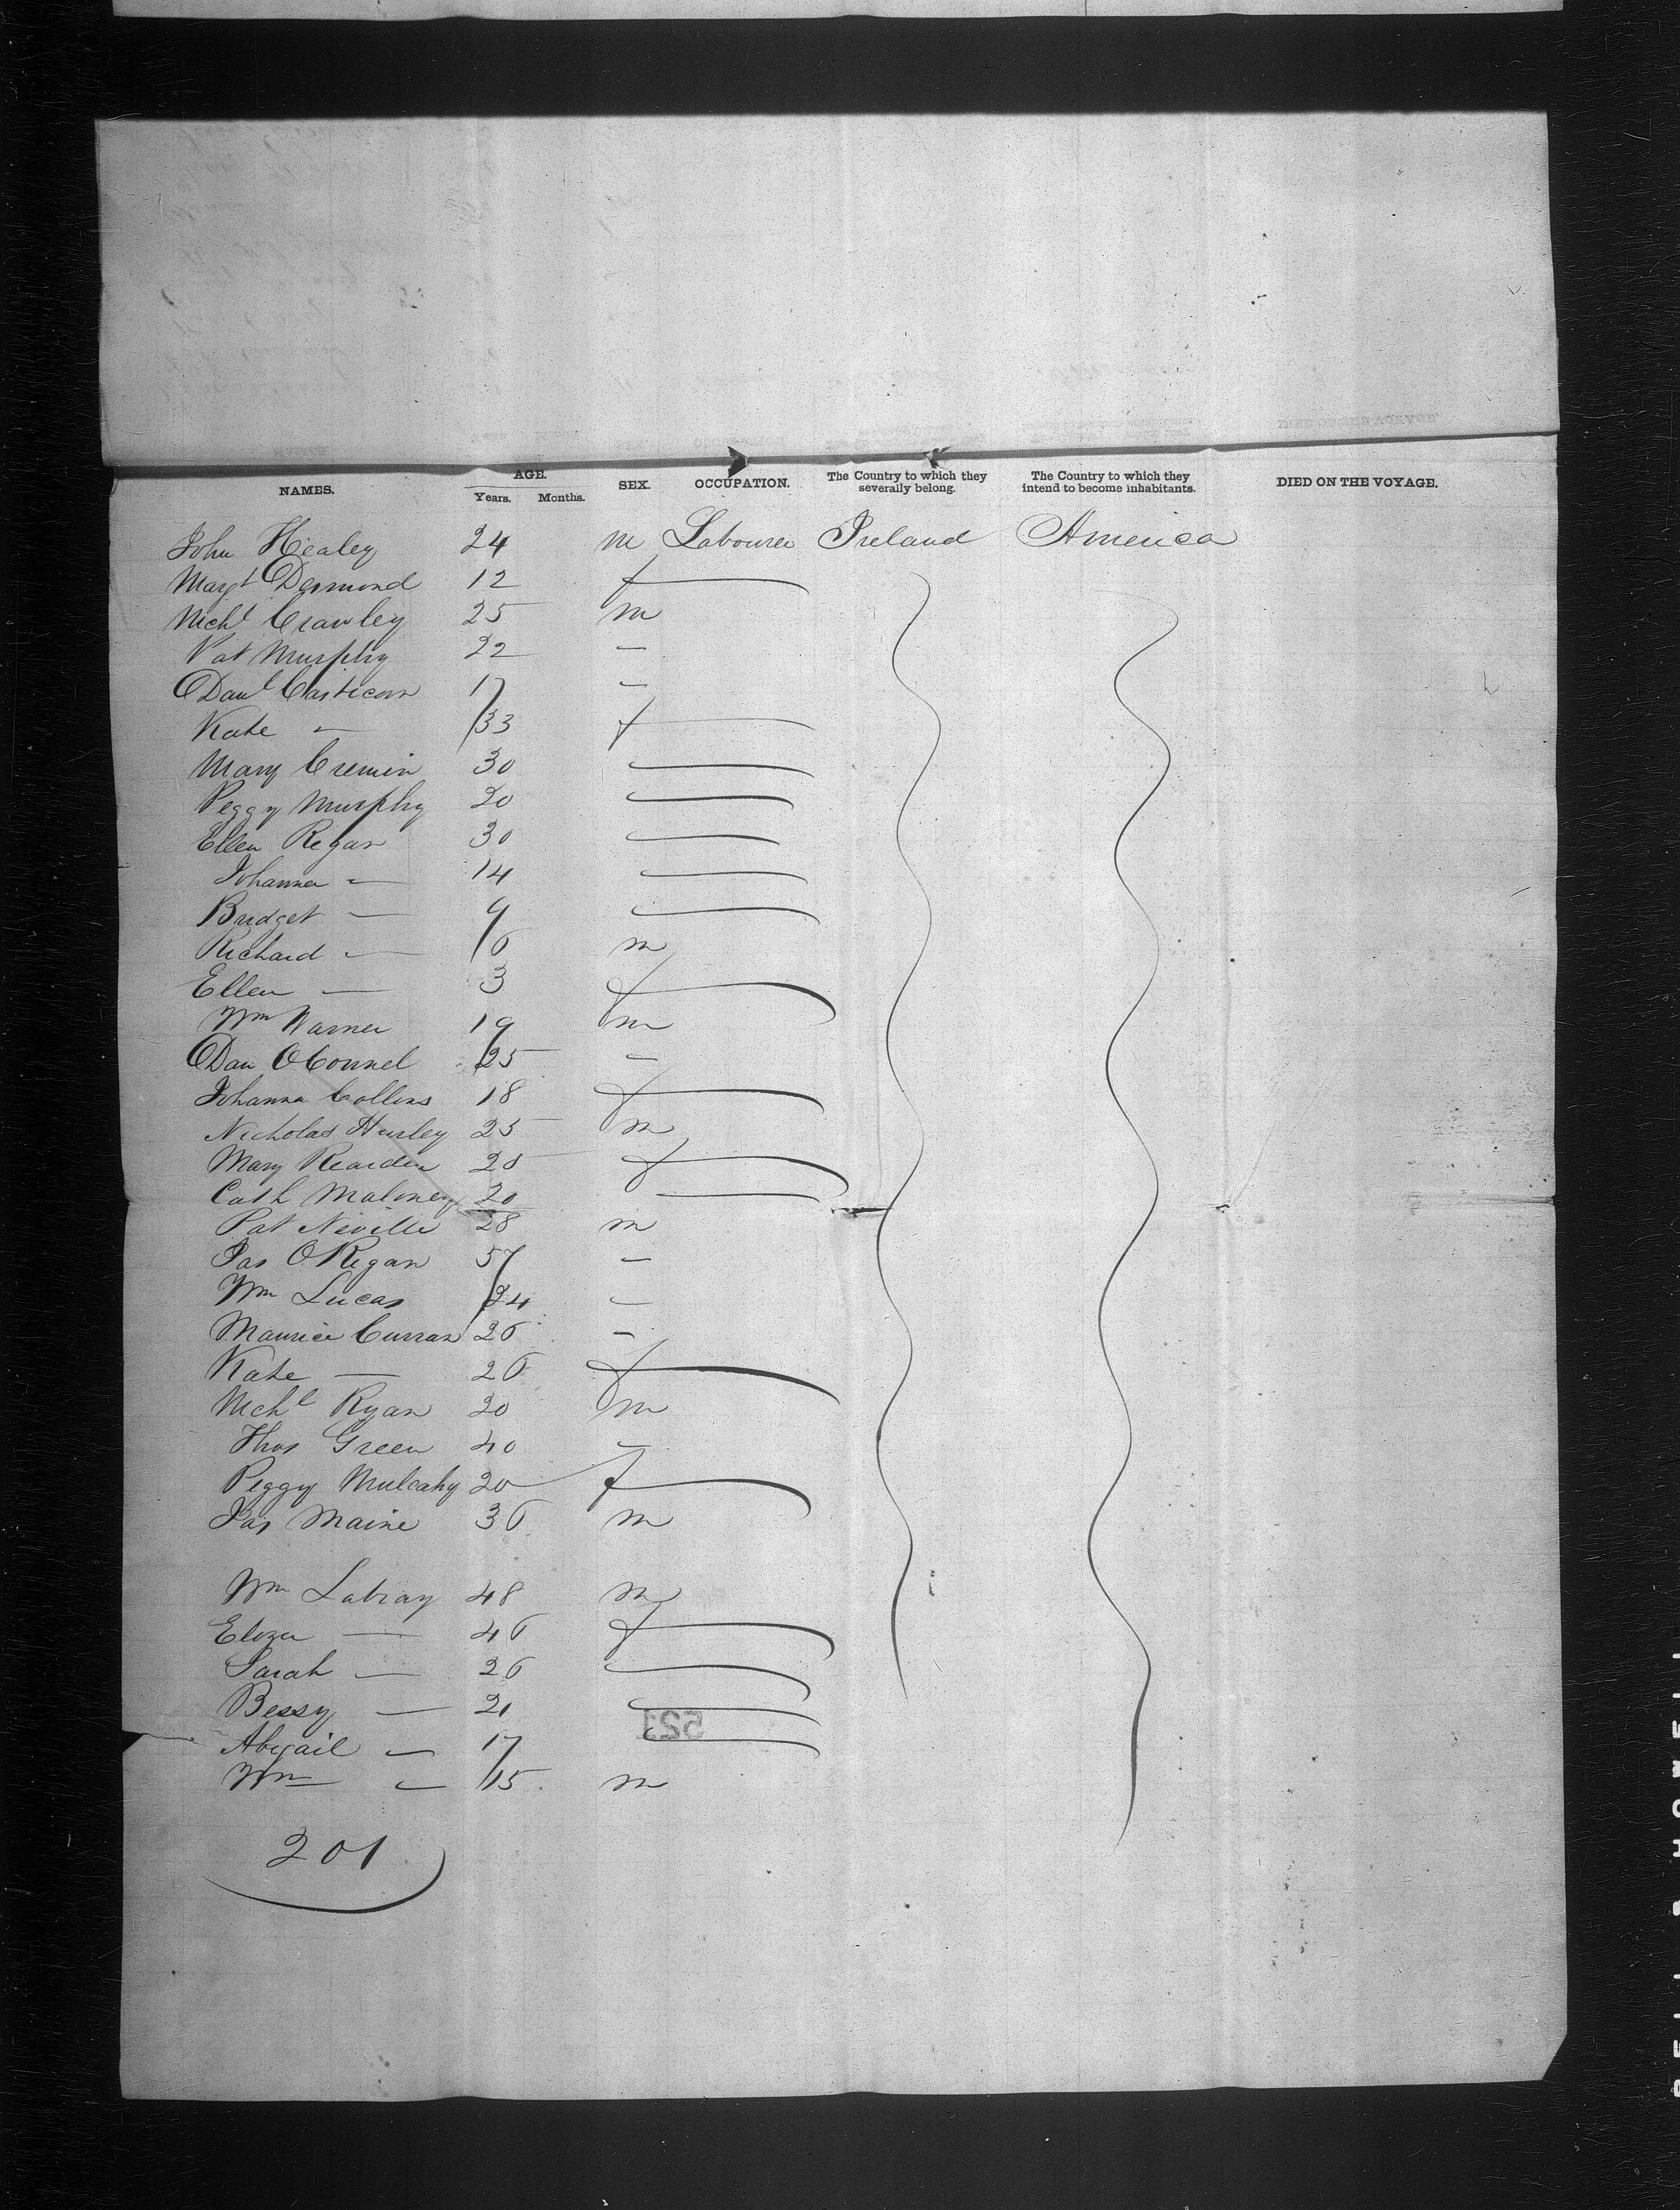 NAMES. AGE. Years. Months. SEX. OCCUPATION. The Country to which they severally belong. The Country to which they intend to become inhabitants. DIED ON THE VOYAGE.
John Healey 24 m Labourer Ireland America
Margt Desmond 12 f
Michl Crawley 25 m
Pat Murphy 22 —
Danl 17 —
Kate — 33 f
Mary Cremin 30
Peggy Murphy 20
Ellen Regan 30
Johanna — 14
Bridget — 9
Richard — 6 m
Ellen — 3 f
Wm Warner 19 m
Dan OConnel 25 —
Johanna Collins 18 f
Nicholas Hurley 25 m
Mary Rearden 20 f
Cath Maloney 20
Pat Neville 28 m
Jas O'Regan 57 —
Wm Lucas 24 —
Maurice Curran 26 —
Kate — 26 f
Michl Ryan 20 m
Thos Green 40 —
Peggy Mulcahy 20 f
Jas Maine 36 m
Wm Labray 48 m
Eliza — 46 f
Sarah — 26
Bessy — 21
Abigail — 17
Wm — 15 m
201